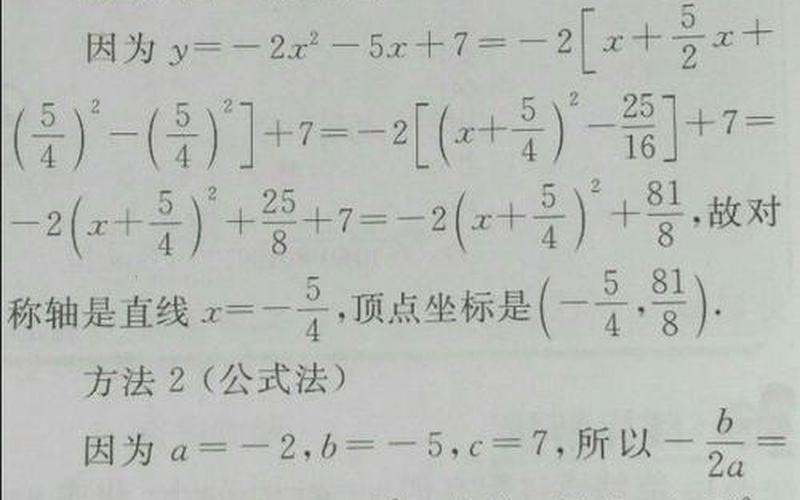 因为 y=-2x²-5x+7=-2[x+5/2x+
(5/4)²-(5/4)²]+7=-2[(x+5/4)²-25/16]+7=
-2(x+5/4)²+25/8+7=-2(x+5/4)²+81/8,故对
称轴是直线 x=-5/4,顶点坐标是(-5/4,81/8).
方法 2 (公式法)
因为 a=-2,b=-5,c=7,所以-b/2a=